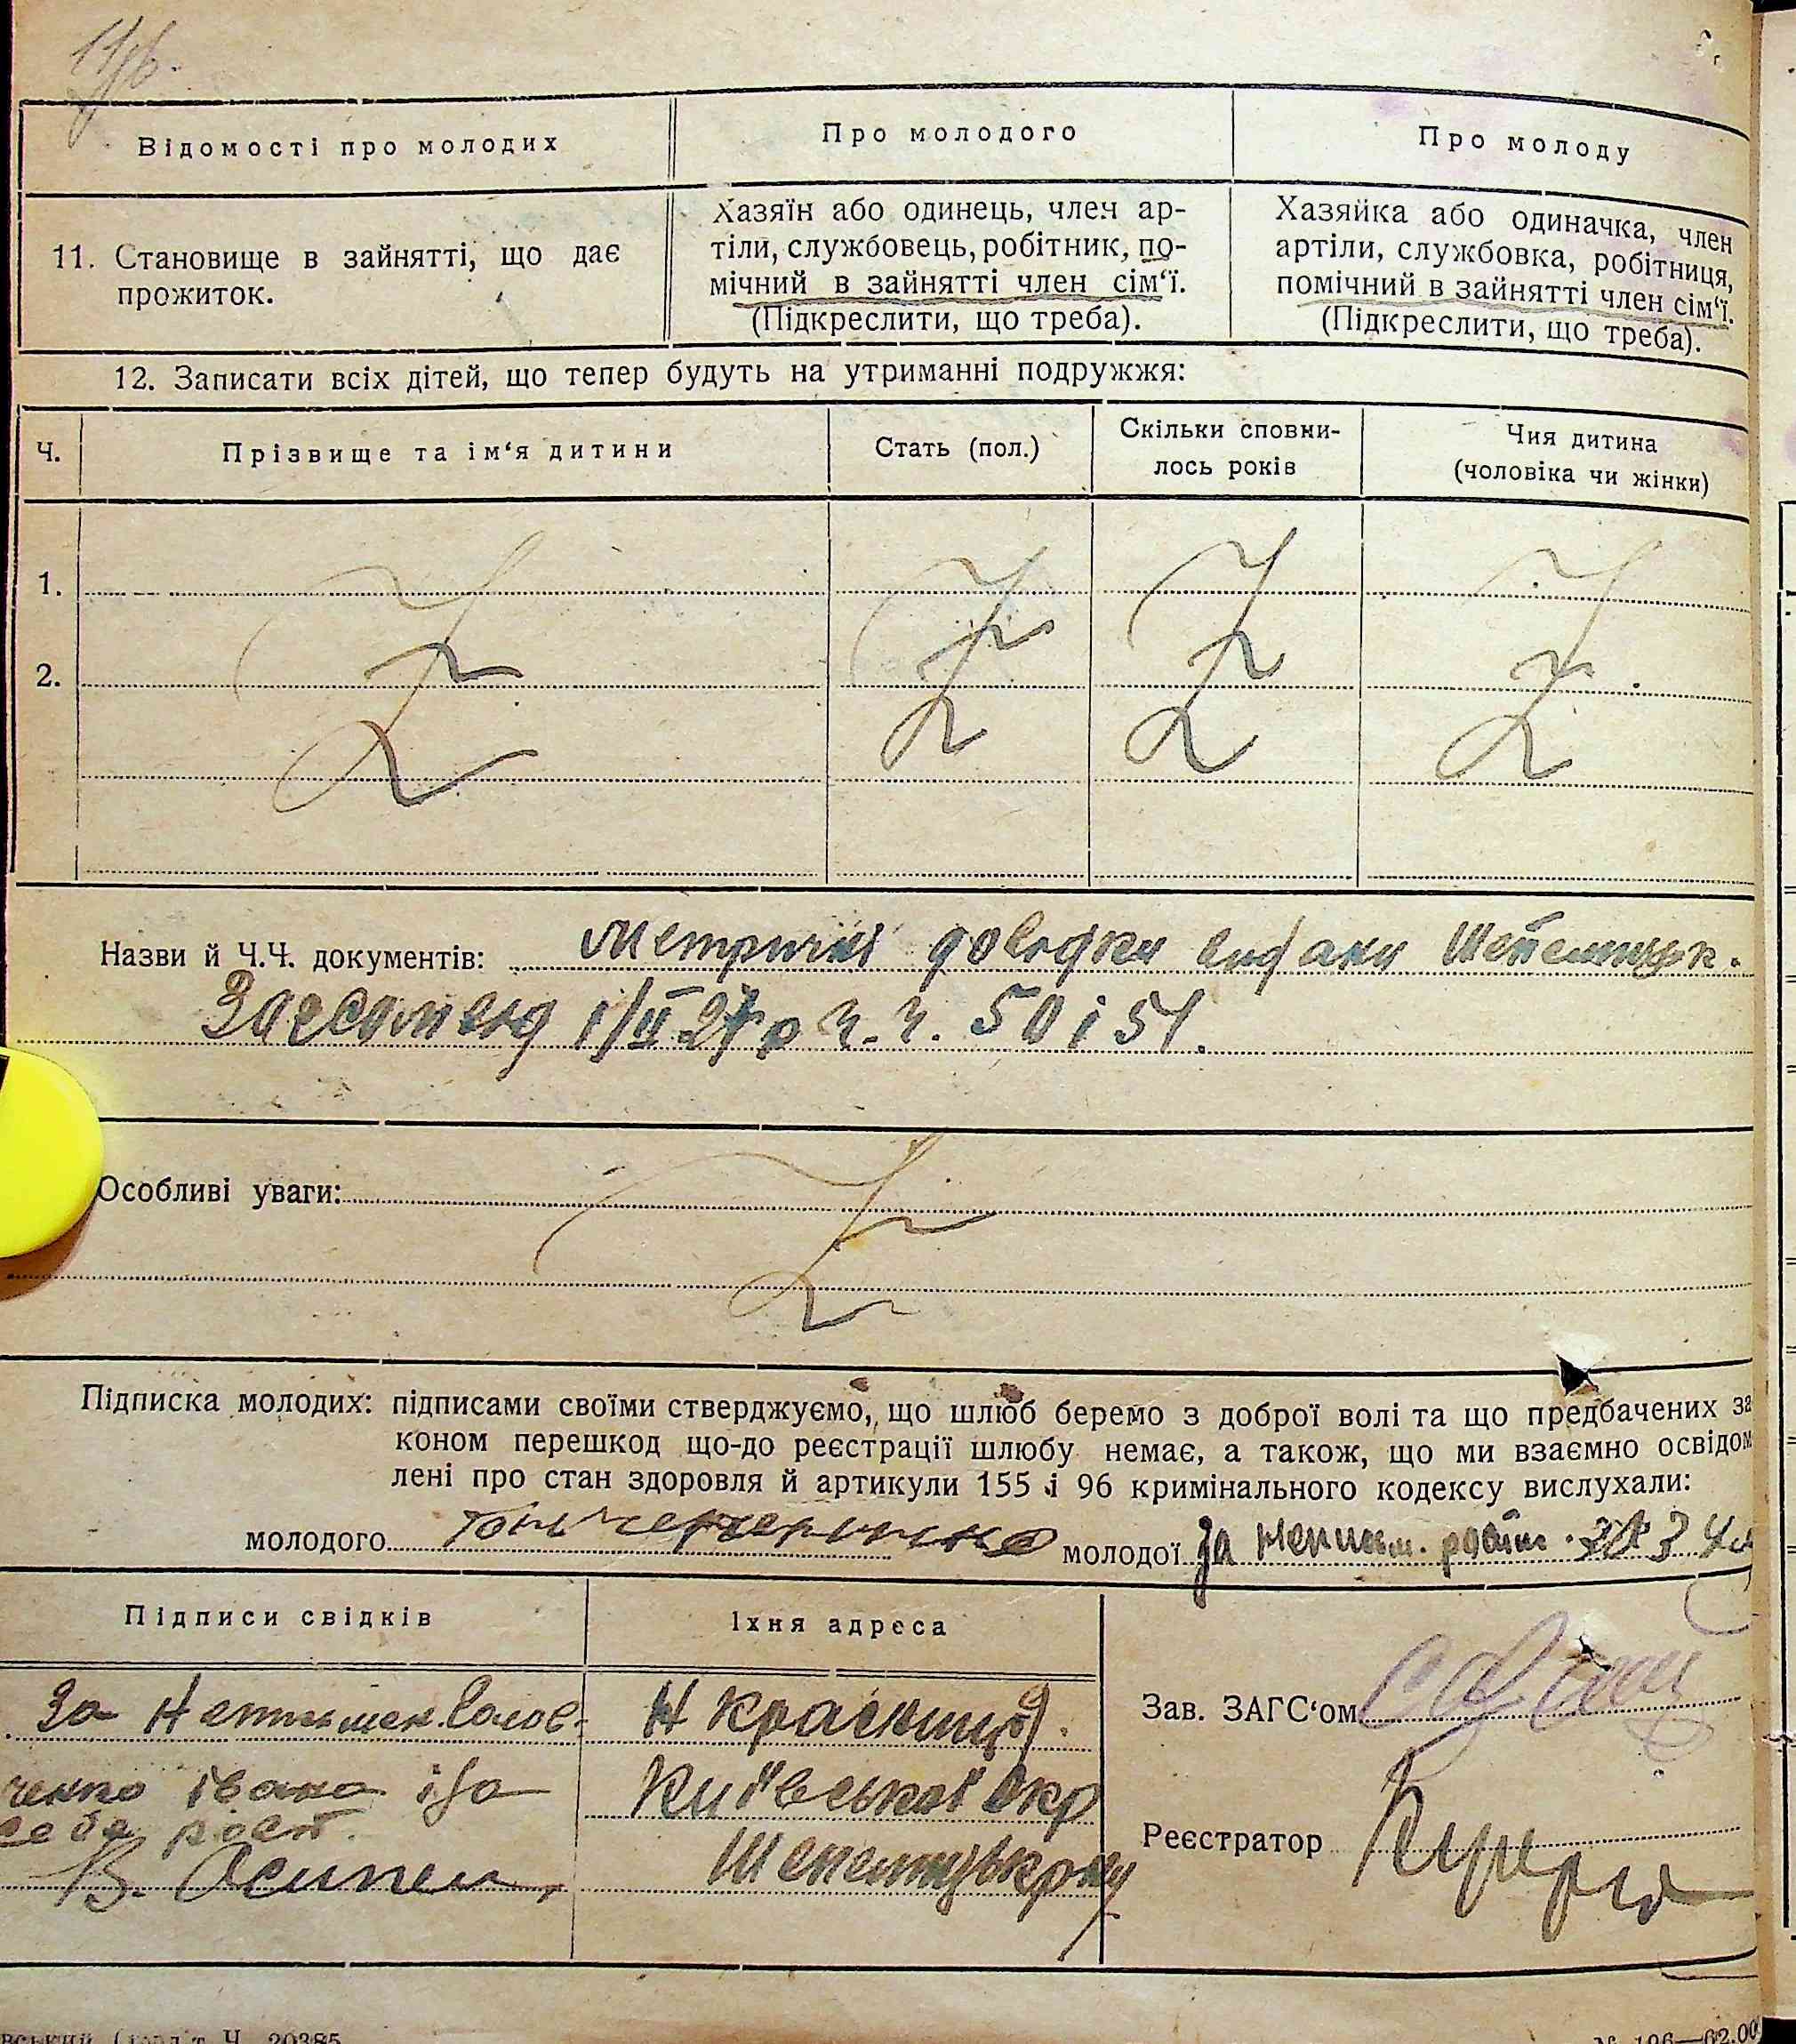 Відомості про молодих
Про молодого
Про молоду
11. Становище в зайнятті, що дає прожиток.
Хазяїн або одинець, член ар-
тіли, службовець, робітник, по-
мічний в зайнятті член сім‘ї.
(Підкреслити, що треба).
Хазяйка або одиначка, член
артіли, службовка, робітниця,
помічний в зайнятті член сім‘ї.
(Підкреслити, що треба).
12. Записати всіх дітей, що тепер будуть на утриманні подружжя:
Ч.
Прізвище та ім‘я дитини
Стать (пол.)
Скільки сповни-
лось років
Чия дитина
(чоловіка чи жінки)
1.
2.
Назви й Ч.Ч. документів: Метричні довідки видани Шепетівськ.
Загсом від 1/II 27 р ч.ч. 50 і 51.
Особливі уваги:
Підписка молодих: підписами своїми стверджуємо, що шлюб беремо з доброї волі та що предбачених за
коном перешкод що-до реєстрації шлюбу немає, а також, що ми взаємно освідом
лені про стан здоровля й артикули 155 і 96 кримінального кодексу вислухали:
молодого молодої за
Підписи свідків
Їхня адреса
За
ченко івана і за
себе
В. Осипен
Київської Окр
Зав. ЗАГС‘ом
Реєстратор
Ч. 20385
№ 106—62.00